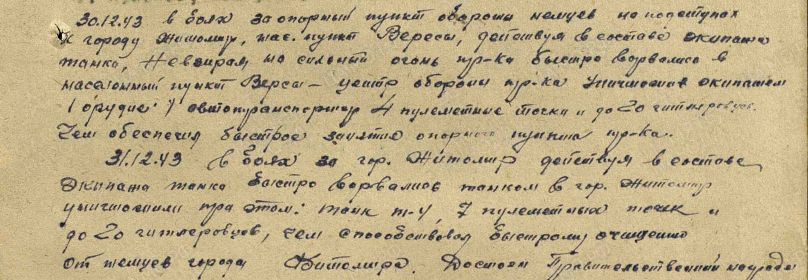 30.12.43 в боях за опорный пункт обороны немцев на подступах
к городу Житомир, нас. пункт Вересы, действуя в составе экипажа
танка, невзирая на сильный огонь пр-ка быстро ворвались в
населенный пункт Вересы - центр обороны пр-ка уничтожив экипажем
1 орудие 1 автотранспортер 4 пулеметные точки и до 20 гитлеровцев.
Чем обеспечил быстрое занятие опорного пункта пр-ка.
31.12.43 в боях за гор. Житомир действуя в составе
экипажа танка быстро ворвались танком в гор. Житомир
уничтожили при этом: танк т-4, 7 пулеметных точек и
до 20 гитлеровцев, чем способствовал быстрому очищению
от немцев города Житомира. Достоин Правительственной награды